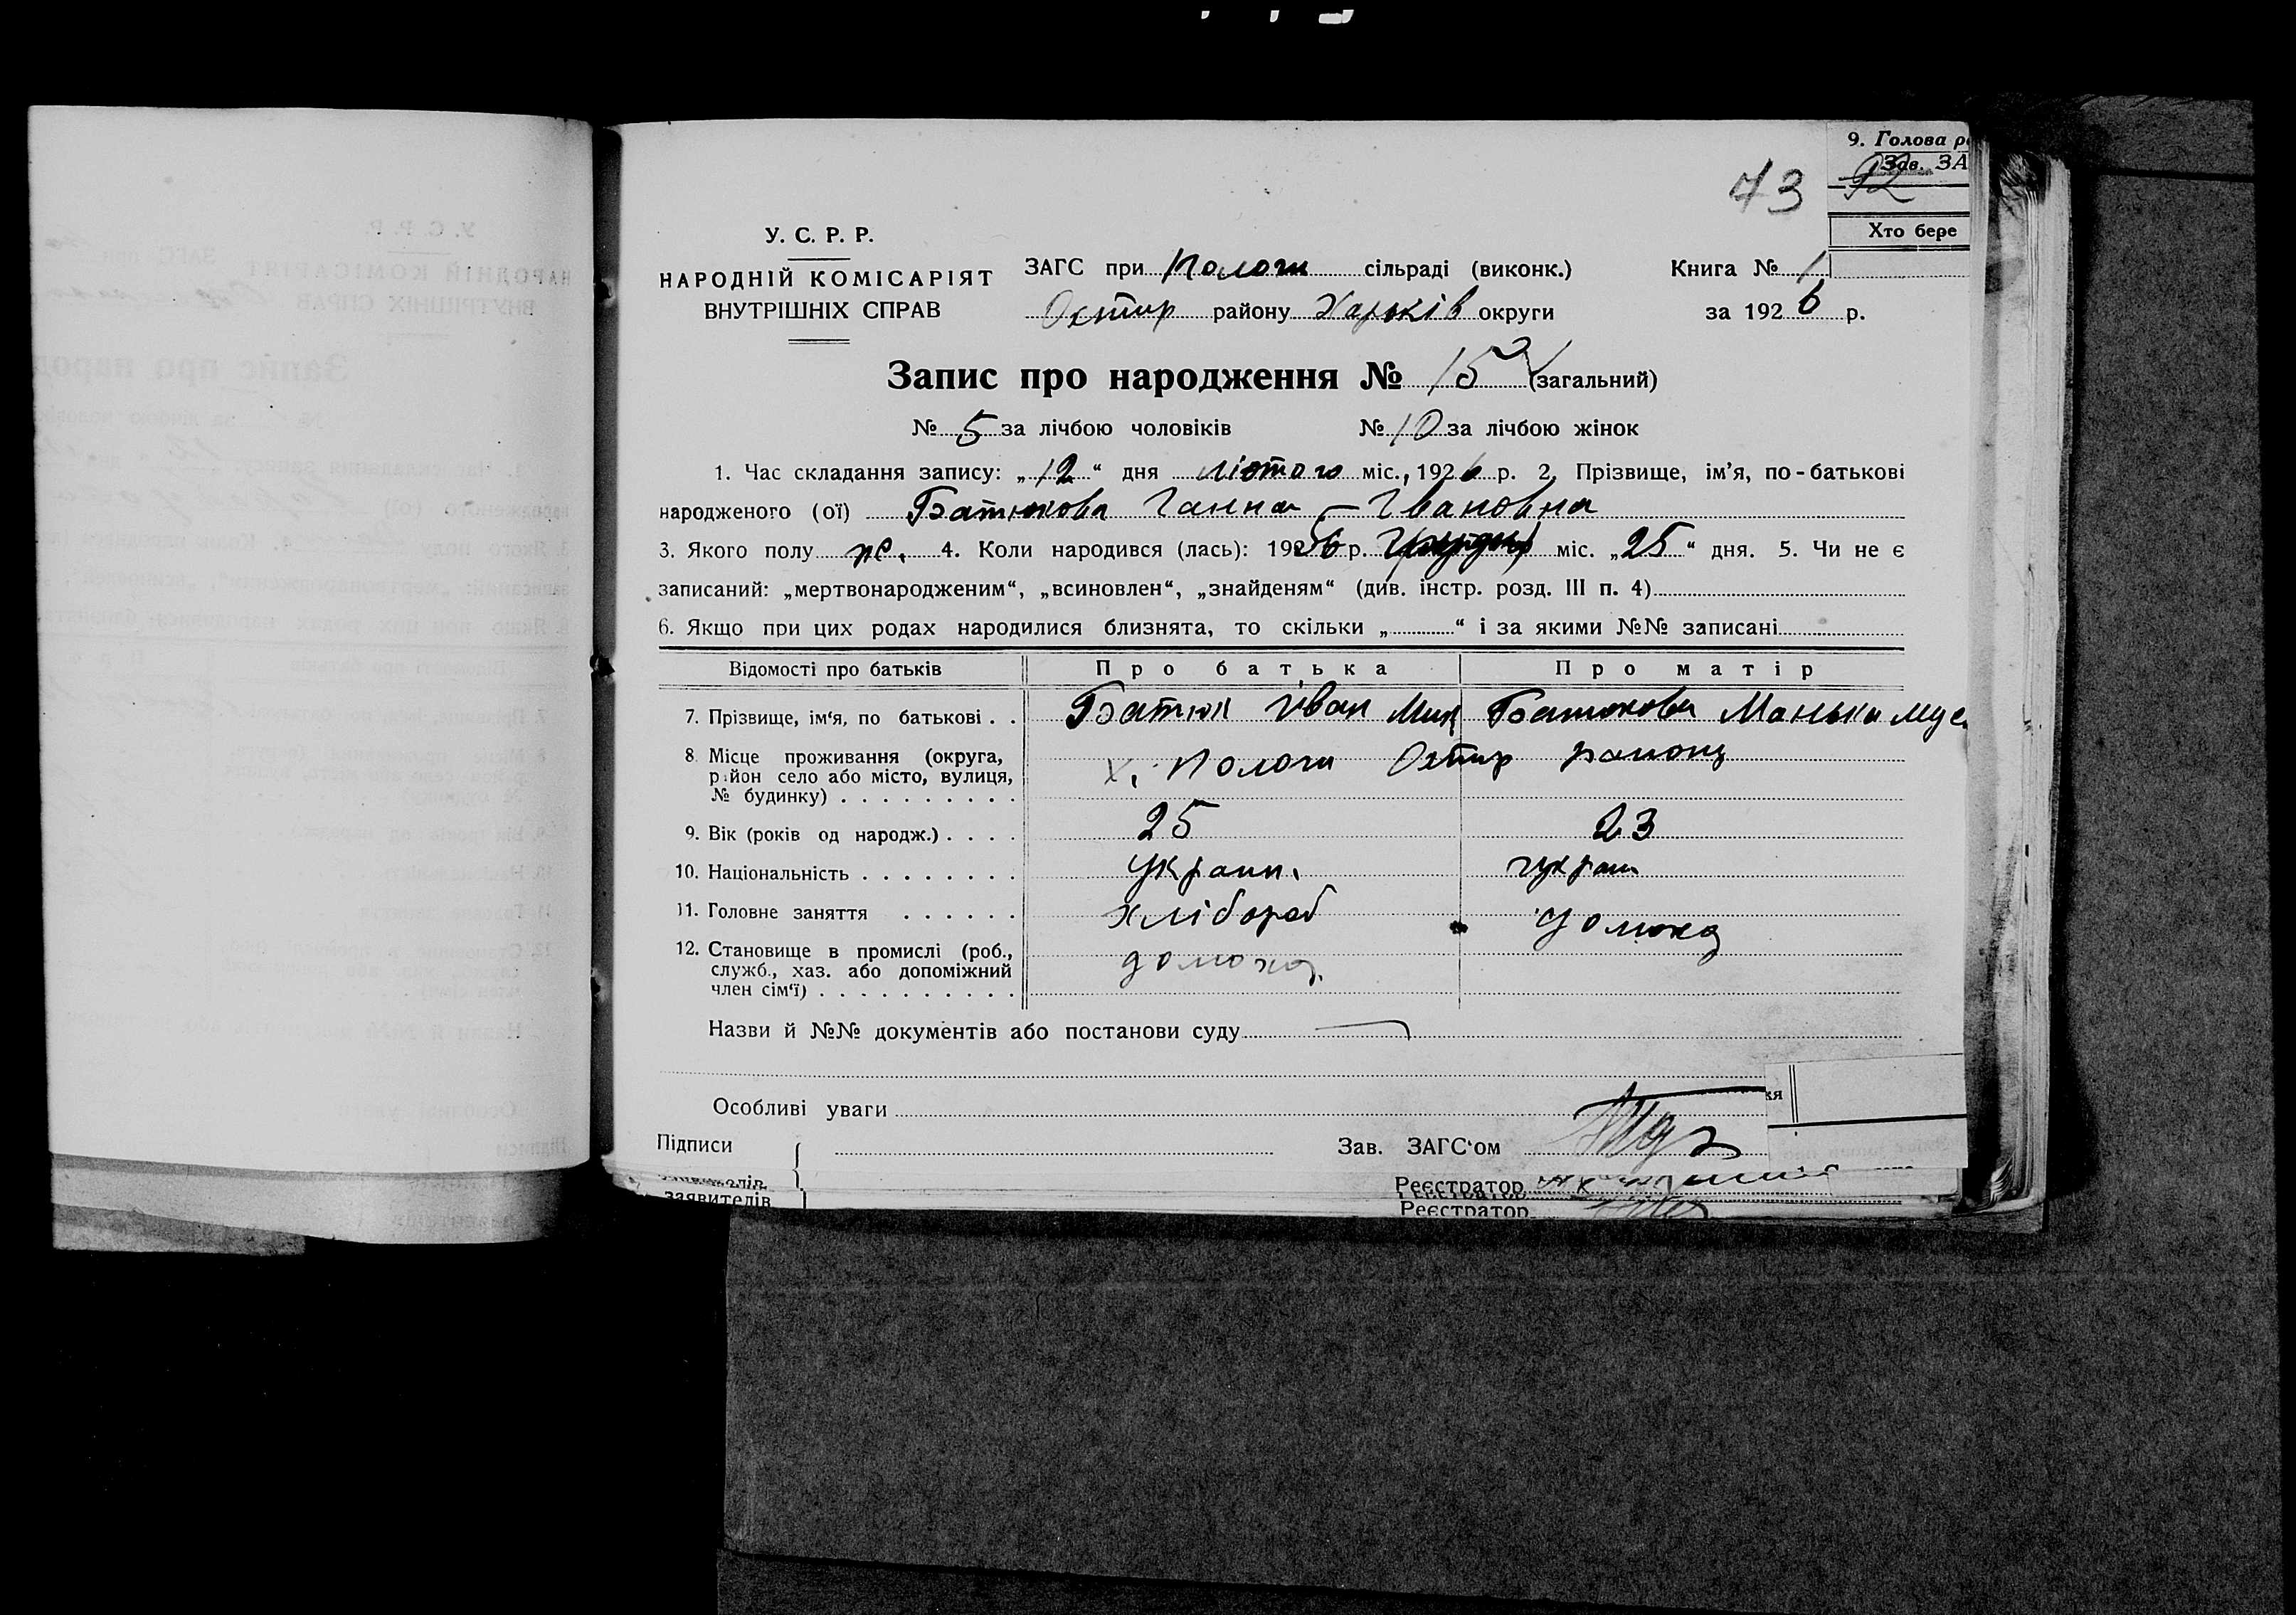 9. Голова р
Зав. ЗА
43 92
Хто бере
У. С. Р. Р.
НАРОДНІЙ КОМІСАРІЯТ
ВНУТРІШНІХ СПРАВ
ЗАГС при Пологи сільраді (виконк.) Книга № 1
Охтир району Харьків округи за 1926 р.
Запис про народження № 15 (загальний)
№ 5 за лічбою чоловіків № 10 за лічбою жінок
1. Час складання запису: „12“ дня лютого міс., 1926 р. 2. Прізвище, ім’я, по-батькові
народженого (ої) Батюкова Ганна – Івановна
3. Якого полу ж. 4. Коли народився (лась): 192 р. міс. „25“ дня. 5. Чи не є
записаний: „мертвонародженим“, „всиновлен“, „знайденям“ (див. інстр. розд. III п. 4)
6. Якщо при цих родах народилися близнята, то скільки „ “ і за якими №№ записані
Відомості про батьків Про батька Про матір
7. Прізвище, ім‘я, по батькові . . Батюк Іван Мик Батюкова Манька Мус
8. Місце проживання (округа,
район село або місто, вулиця,
№ будинку) . . . . . . . . . х. Пологи Охтир району
9. Вік (років од народж.) . . . . 25 23
10. Національність . . . . . . . . украин. украин
11. Головне заняття . . . . . . хлібороб
12. Становище в промислі (роб.,
служб., хаз. або допоміжний
член сім‘ї) . . . . . . . . . .
Назви й №№ документів або постанови суду
Особливі уваги
ня
Підписи Зав. ЗАГС‘ом
Реєстратор
заявителів Реєстратор